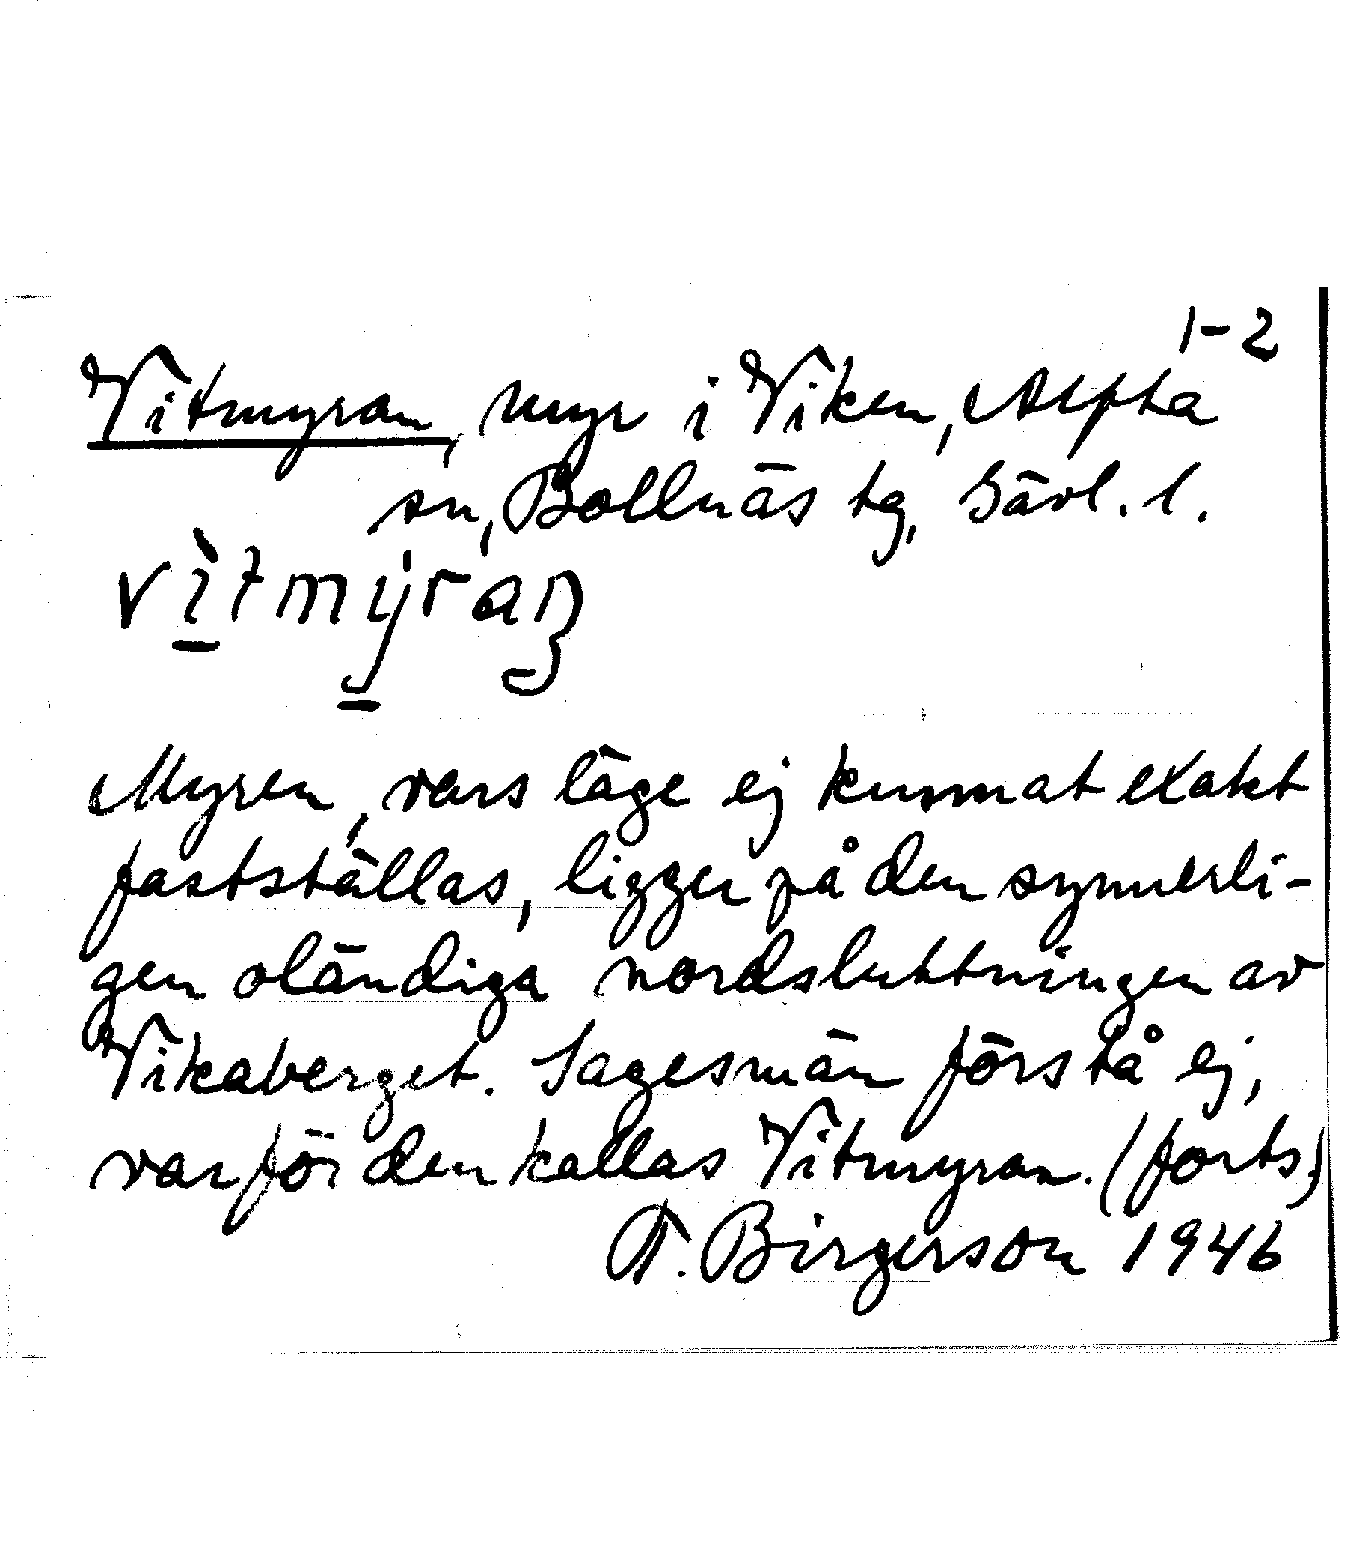 1-2
Vitmyran, myr i Viken, Alfta
sn, Bollnäs tg, Gävl. l.
vìtmýraŋ
Myren, vars läge ej kunnat exakt
fastställas, ligger på den synnerli-
gen oländiga nordsluttningen av
Vikaberget. Sagesmän förstå ej,
varför den kallas Vitmyran. (forts.)
T. Birgerson 1946